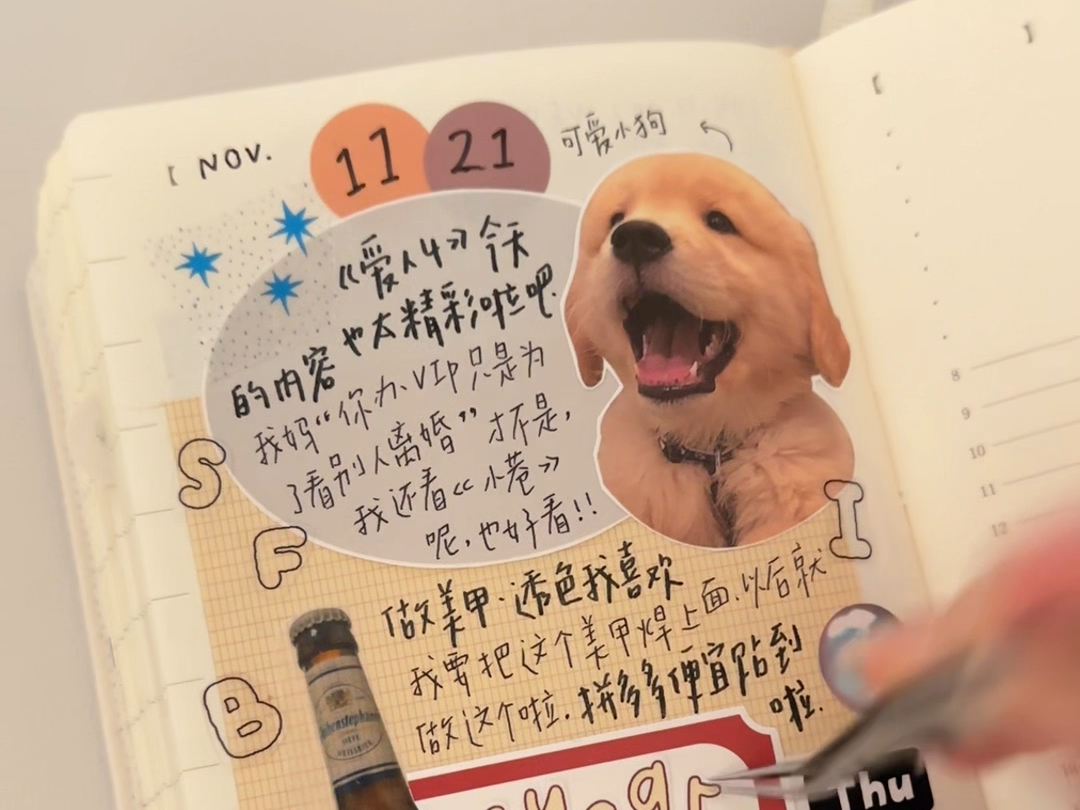 [ NOV.
11 21
可爱小狗
《爱人4》今天
的内容也太精彩啦吧.
我妈“你办VIP只是为
了看别人离婚”才不是,
我还看《小巷》
呢,也好看!!
S
F
I
B
做美甲.透色我喜欢
我要把这个美甲焊上面.以后就
做这个啦.拼多多便宜贴到
啦.
Thu
8
9
10
11
12